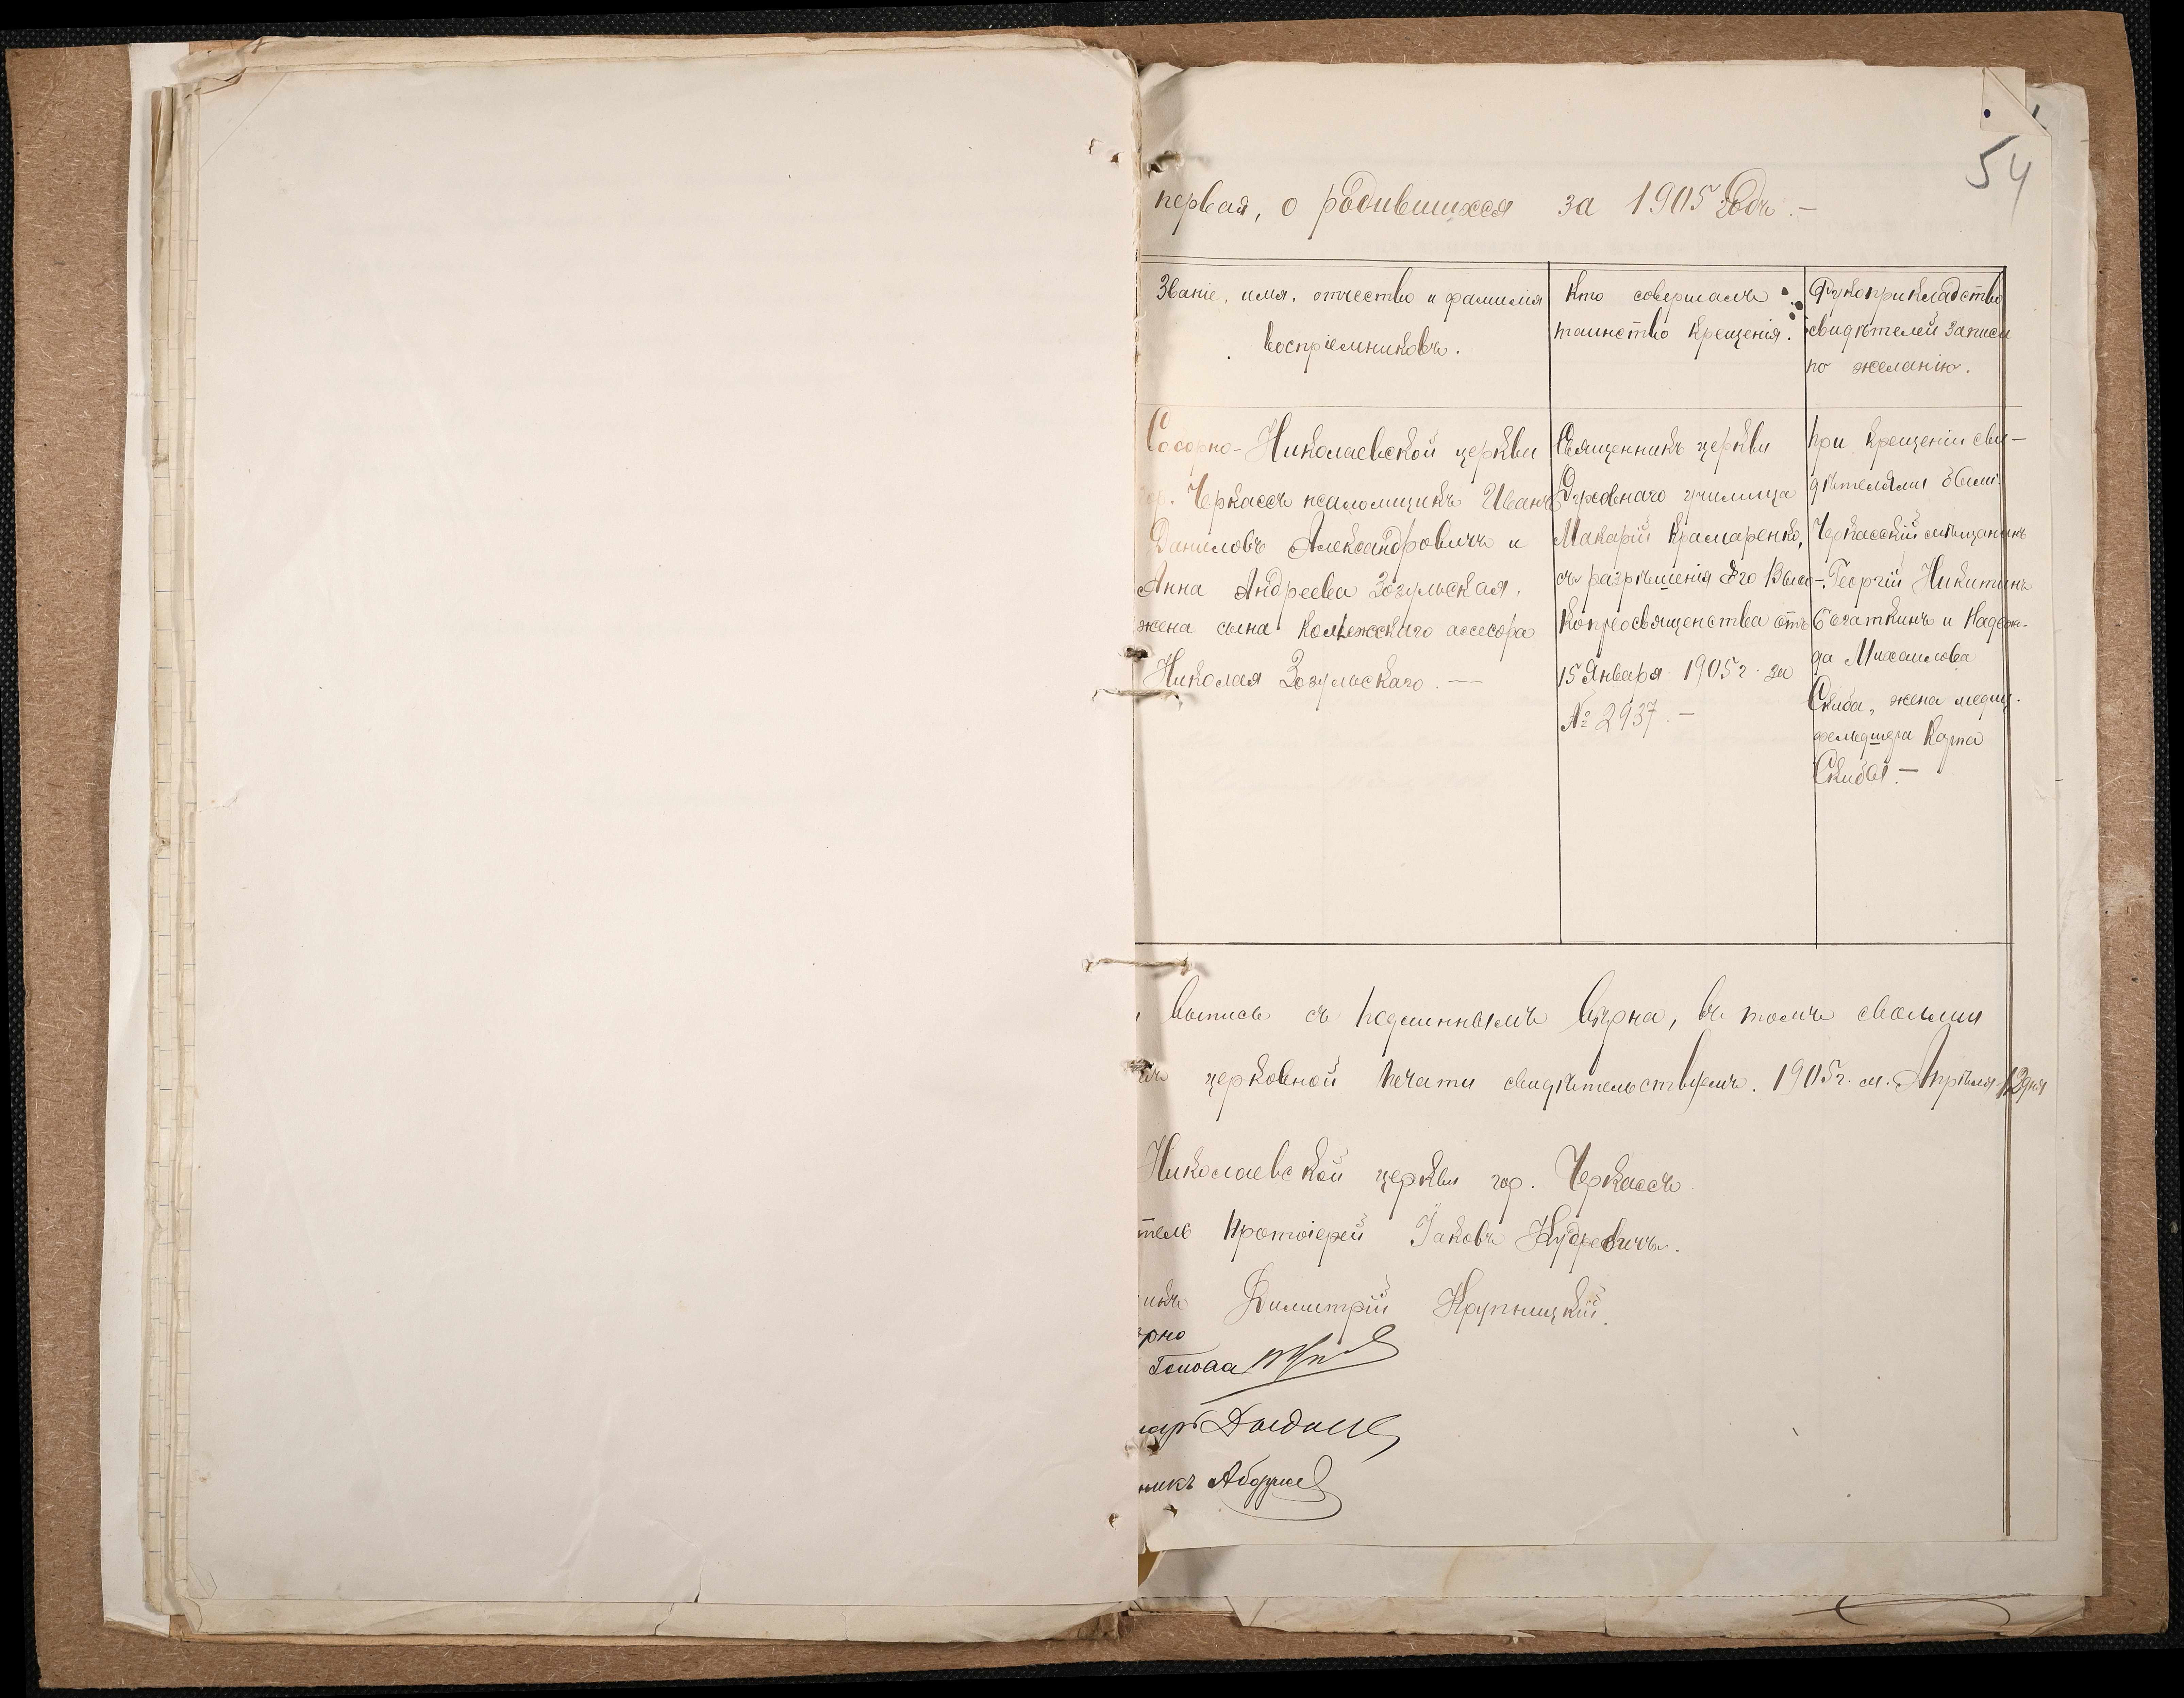 54
первая, о родившихся за 1905 годъ. –
Званіе, имя, отчество и фамилія
воспріемниковъ.
Кто совершалъ
таинство крещенія.
Рукоприкладство
свидѣтелей записи
по желанію.
Соборно-Николаевской церкви
гор. Черкассъ псаломщикъ Иванъ
Даниловъ Александровичъ и
Анна Андреева Зозульская,
жена сына коллежскаго ассесора
Николая Зозульскаго. –
Священникъ церкви
Духовнаго училища
Макарій Крамаренко,
съ разрѣшенія Его Высо-
копреосвященства отъ
15 Января 1905 г. за
№ 2937. –
При крещеніи сви-
дѣтелями были:
Черкасскій мѣщанинъ
Георгій Никитинъ
Богаткинъ и Надеж-
да Михаилова
Скиба, жена медиц.
фельдшера Козма
Скибы. –
выпись съ подлиннымъ вѣрна, въ томъ своими
церковной печати свидѣтельствуемъ. 1905 г. м. Апрѣля 12 дня
Николаевской церкви гор. Черкассъ
тель Протоіерей Іаковъ Кудревичъ.
никъ Димитрій Крупницкій.
ѣрно
Голова
тарь
никъ